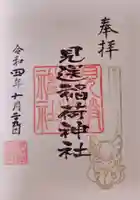 奉拝
見送稲荷神社
令和四年十月二五日